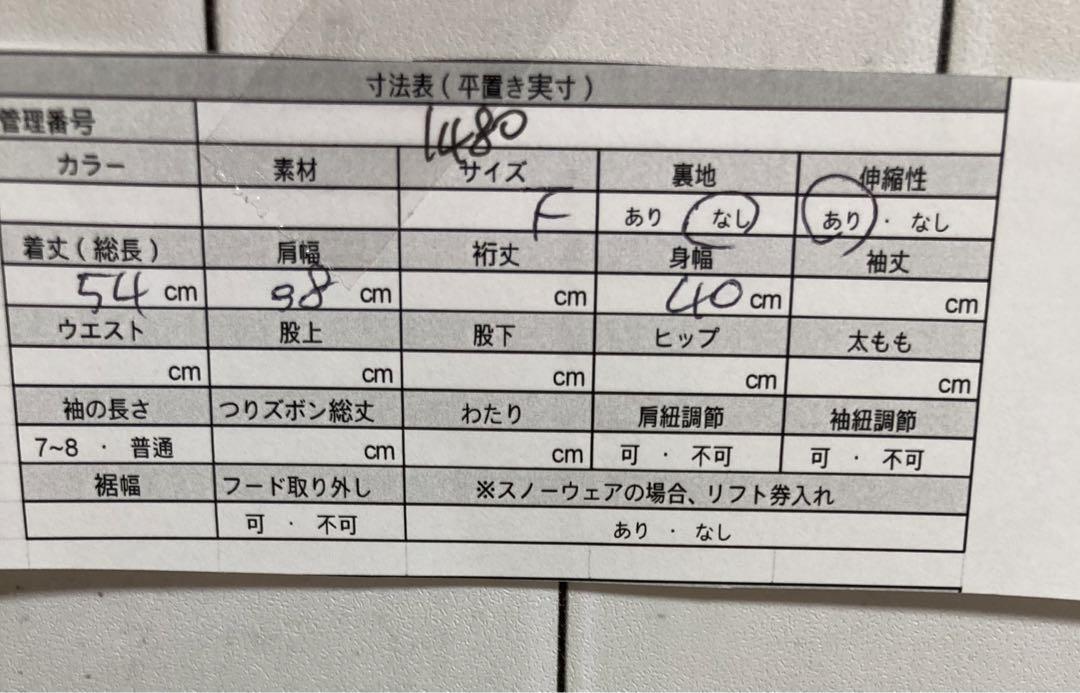 寸法表(平置き実寸)
管理番号 1480
カラー 素材 サイズ 裏地 伸縮性
F あり なし あり ・ なし
着丈(総長) 肩幅 裄丈 身幅 袖丈
54 cm 38 cm cm 40 cm cm
ウエスト 股上 股下 ヒップ 太もも
cm cm cm cm cm
袖の長さ つりズボン総丈 わたり 肩紐調節 袖紐調節
7~8 ・ 普通 cm cm 可 ・ 不可 可 ・ 不可
裾幅 フード取り外し ※スノーウェアの場合、リフト券入れ
可 ・ 不可 あり ・ なし